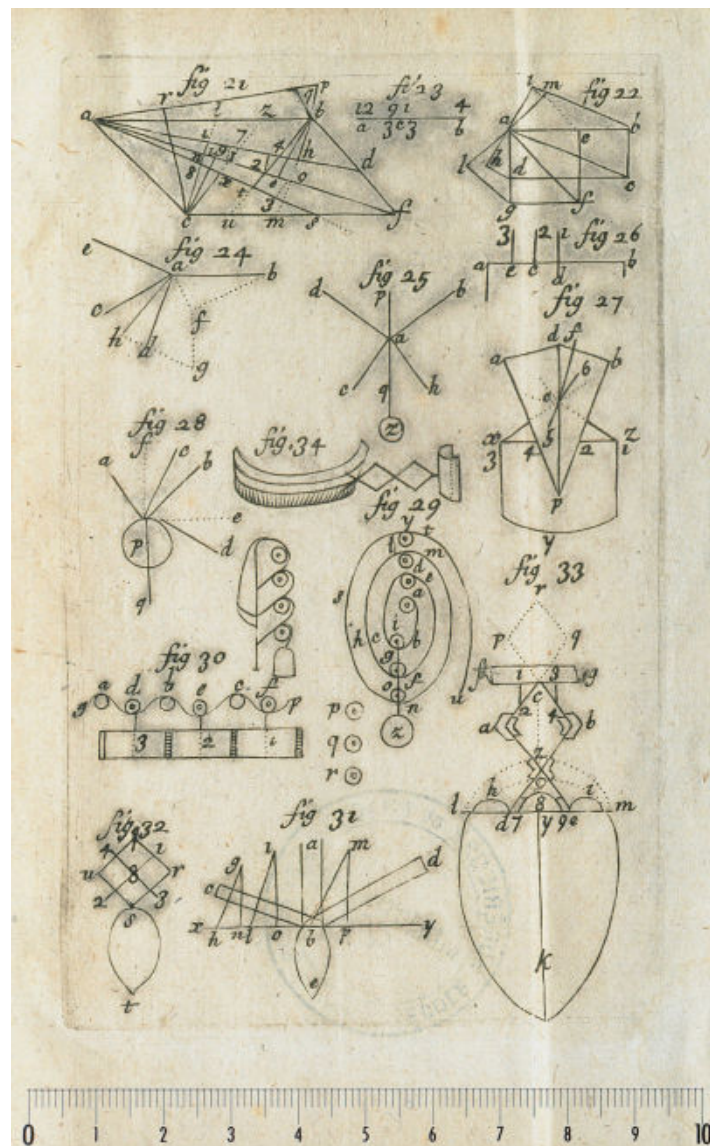 fig 21
r
p
q
a
l
z
b
i
7
n
1
9
3
4
h
d
8
x
2
t
6
o
c
u
3
m
s
f
fi 23
12 9 1 4
a 3 c 3 b
fig 22
i
m
a
e
b
l
h
d
c
g
f
fig 24
e
a
b
c
h
d
f
g
fig 25
d
p
b
a
c
q
h
z
fig 26
3 2 1
a e c d b
fig 27
d f
a
b
6
e
x
5
z
3 4 2 1
p
y
fig 28
f
c
a
b
e
p
d
q
fig. 34
fig 29
y
t
l
m
d
e
s
a
i
h c b
g
o f
n
u
z
fig 30
a b c
g d e f p
3 2 1
p
q
r
fig 33
r
p q
f 1 3 g
c
a 2 4 b
z
h i
l d 7 8 y 9 e m
k
fig 32
4 f 1
u 8 r
2 3
s
t
fig 31
g i a m
c d
x h n l o b p y
e
0 1 2 3 4 5 6 7 8 9 10